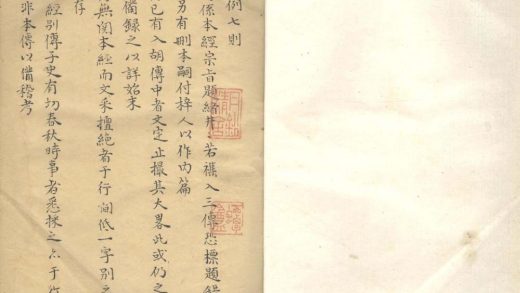 例七則
係本經宗旨題緒井〃若襍入三傳恐標題錯
另有刪本嗣付梓人以作內篇
已有入胡傳中者文定止撮其大畧此或仍之
備錄之以詳始末
無関本經而文采擅絕者于行間低一字別之
存
經別傳子史有切春秋時事者悉採之亦于
非本傳以備稽考